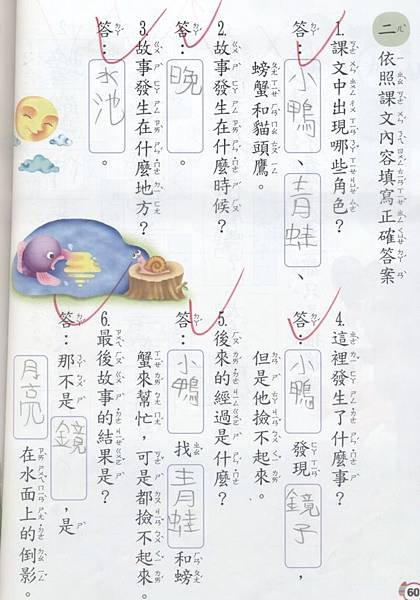 二 依照課文內容填寫正確答案
1. 課文中出現哪些角色？
答：小鴨、青蛙、
螃蟹和貓頭鷹。
2. 故事發生在什麼時候？
答：晚。
3. 故事發生在什麼地方？
答：水池。
4. 這裡發生了什麼事？
答：小鴨發現鏡子，
但是他撿不起來。
5. 後來的經過是什麼？
答：小鴨找青蛙和螃
蟹來幫忙，可是都撿不起來。
6. 最後故事的結果是？
答：那不是鏡，是
月亮在水面上的倒影。
60